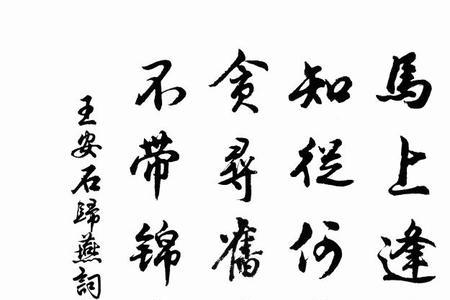 馬上逢
知從何
貪尋舊
不帶錦
王安石歸燕詞